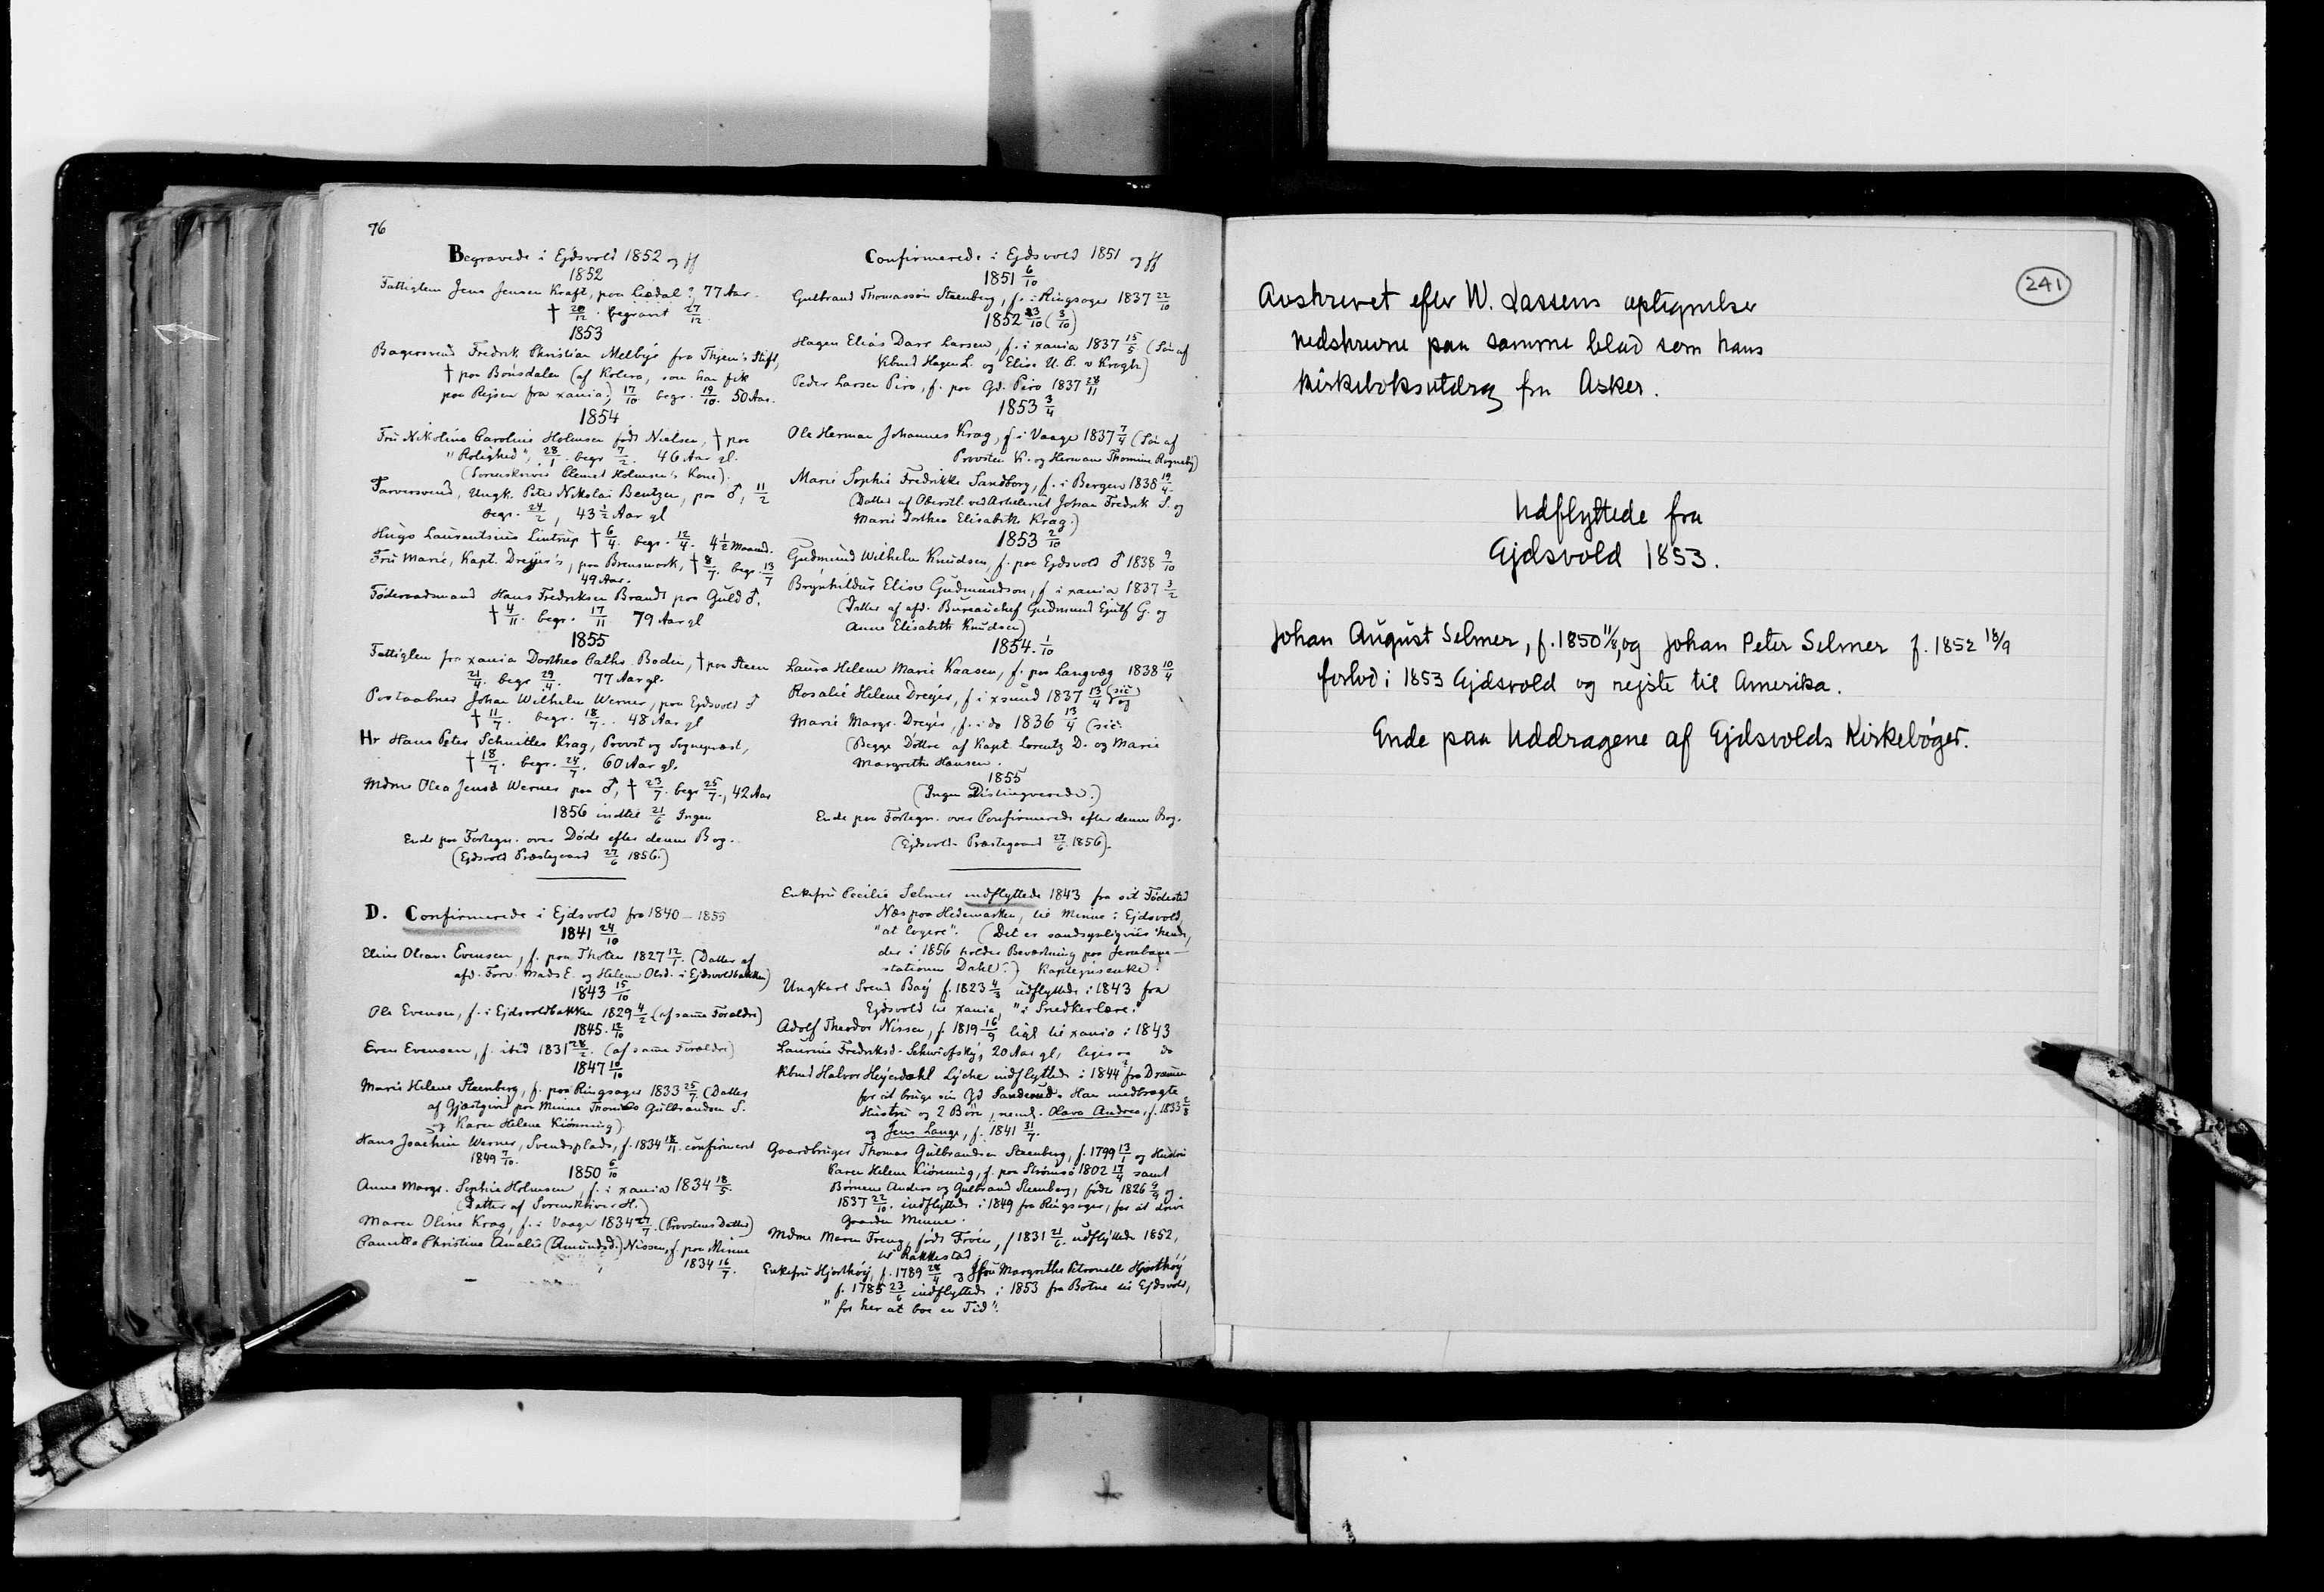 76
Begravede i Ejdsvold 1852 og ff
1852
Fattiglem Jens Jensen Kraft, paa Liødal? 77 Aar.
† 20/12. begravet 27/12.
1853
Bagersvend Fredrik Christian Melbye fra Thjem's Stift,
† paa Bonsdalen (af Kolera, som han fik
paa Rejsen fra xania) 17/10 begr. 19/10. 50 Aar.
1854
Fru Nikoline Caroline Holmsen født Nielsen, † paa
"Rolighed", 28/1. begr. 7/2. 46 Aar gl.
(Sorenskriver Clemet Holmsen's Kone).
Farversvend, Ungk. Peter Nikolai Bentzen, paa ♂, 11/2
begr. 24/2, 43 1/2 Aar gl
Hugo Laurentsius Lintrup † 6/4. begr. 12/4. 4 1/2 Maaned.
Fru Marie, Kapt. Dreyer's, paa Brensmork, † 8/7. begr. 13/7
49 Aar.
Føderaadsmand Hans Fredriksen Brandt paa Guld ♂.
† 4/11. begr. 17/11 79 Aar gl
1855
Fattiglem fra xania Dorthea Cathr. Bodin, † paa Steen
21/4. begr 29/4. 77 Aar gl.
Postaabner Johan Wilhelm Werner, paa Ejdsvold ♂
† 11/7. begr. 18/7. 48 Aar gl
Hr Hans Peter Schnitler Krag, Provst og Sognepræst,
† 18/7. begr. 24/7. 60 Aar gl.
Mdme Olea Jensd. Werner paa ♂, † 23/7. begr 25/7., 42 Aar
1856 indtil 21/6 Ingen
Ende paa Fortegn. over Døde efter denne Bog.
(Ejdsvold Præstegaard 27/6 1856.)
D. Confirmerede i Ejdsvold fra 1840 - 1855
1841 24/10
Eline Oleane Evensen, f. paa Thoten 1827 12/1. (Datter af
afd. Forv. Mads E. og Helene Olsd. i Ejdsvoldbakken)
1843 15/10
Ole Evensen, f. i Ejdsvoldbakken 1829 4/2 (af samme Forældre)
1845. 12/10
Even Evensen, f. ibid 1831 28/2. (af samme Forældre)
1847 10/10
Marie Helene Steenberg, f. paa Ringsager 1833 25/7 (Datter
af Gjæstgiver paa Minne Thomas Gulbrandsen S.
og Karen Helene Kiønning)
Hans Joachim Werner, Svendsplads, f. 1834 18/11. confirmeret
1849 7/10.
1850 6/10
Anne Margr. Sophie Holmsen, f. i xania 1834 18/5.
(Datter af Sorenskriver H.)
Maren Oline Krag, f. i Vaage 1834 27/7. (Provstens Datter)
Camilla Christine Amalie (Amundsd.) Nissen, f. paa Minne
1834 16/7.
Confirmerede i Ejdsvold 1851 og ff
1851 6/10
Gulbrand Thomassøn Steenberg, f. i Ringsager 1837 22/10
1852 (3/10)
Hagen Elias Darr Larsen, f. i xania 1837 15/5 (Søn af
Kbmd Hagen L. og Elise U. C. v Krogh)
Peder Larsen Piro, f. paa Gd. Piro 1837 28/11
1853 3/4
Ole Herman Johannes Krag, f. i Vaage 1837 7/4 (Søn af
Provsten K. og Hermane Thomine Rogneby)
Marie Sophie Fredrikke Sandborg, f. i Bergen 1838 19/4.
(Datter af Oberstl. ved Artilleriet Johan Fredrik S. og
Marie Dorthea Elisabeth Krag.)
1853 2/10
Gudmund Wilhelm Knudsen, f. paa Ejdsvold ♂ 1838 9/10
Brynhildur Elise Gudmundson, f. i xania 1837 3/2
(Datter af afd. Bureauchef Gudmund Ejulf G. og
Anne Elisabeth Knudsen)
1854. 1/10
Laura Helene Marie Kaasen, f. paa Langvæg 1838 10/4
Rosalie Helene Dreyer, f. i xsund 1837 13/4 (sic) og
Marie Margr. Dreyer, f. i do 1836 13/4 (sic
(Begge Døttre af Kapt. Lorentz D. og Marie
Margrethe Hansen.
1855
(Ingen Distingverede.)
Ende paa Fortegn. over Confirmerede efter denne Bog.
(Ejdsvold Præstegaard 27/6 1856).
Enkefru Cecilie Selmer indflyttede 1843 fra sit Fødested
Næs paa Hedemarken, til Minne i Ejdsvold,
"at logere". (Det er sandsynligviis hende,
der i 1856 holder Beværtning paa Jernbane-
stationen Dahl?) Kapteinsenke.
Ungkarl Svend Baÿ f. 1823 4/3 udflyttede i 1843 fra
Ejdsvold til xania, "i Snedkerlære."
Adolf Theodor Nissen, f. 1819 16/9 ligl til xania i 1843
Laurine Fredriksd. Schwofsky, 20 Aar gl, ligesaa do
Kbmd Halvor Heyerdahl Lyche indflyttede i 1844 fra Drammen
for at bruge sin Gd Sanderud. Han medbragte
Hustru og 2 Børn, neml. Olava Andrea, f. 1833 2/8
og Jens Lange, f. 1841 31/7.
Gaardbruger Thomas Gulbrandsen Steenberg, f. 1799 13/1 og Hustru
Karen Helene Kiønning, f. paa Strømsø 1802 17/4 samt
Børnene Anders og Gulbrand Steenberg, fødte 1826 9/9 og
1837 22/10. indflyttede i 1849 fra Ringsager, for at drive
Gaarden Minne.
Mdme Maren Freng, født Frøen, f 1831 21/6. udflyttede 1852,
til Rakkestad.
Enkefru Hjorthøy, f. 1789 28/4 og Jfru Margrethe Petronelle Hjorthøy
f. 1785 23/6 indflyttede i 1853 fra Botne til Ejdsvold,
"for her at boe en Tid".
241
Avskrevet efter W. Lassens optegnelser
nedskrevne paa samme blad som hans
kirkeboksutdrag fra Asker.
Udflyttede fra
Ejdsvold 1853.
Johan August Selmer, f. 1850 11/8, og Johan Peter Selmer f. 1852 18/9
forlod i 1853 Ejdsvold og rejste til Amerika.
Ende paa Uddragene af Ejdsvolds Kirkebøger.